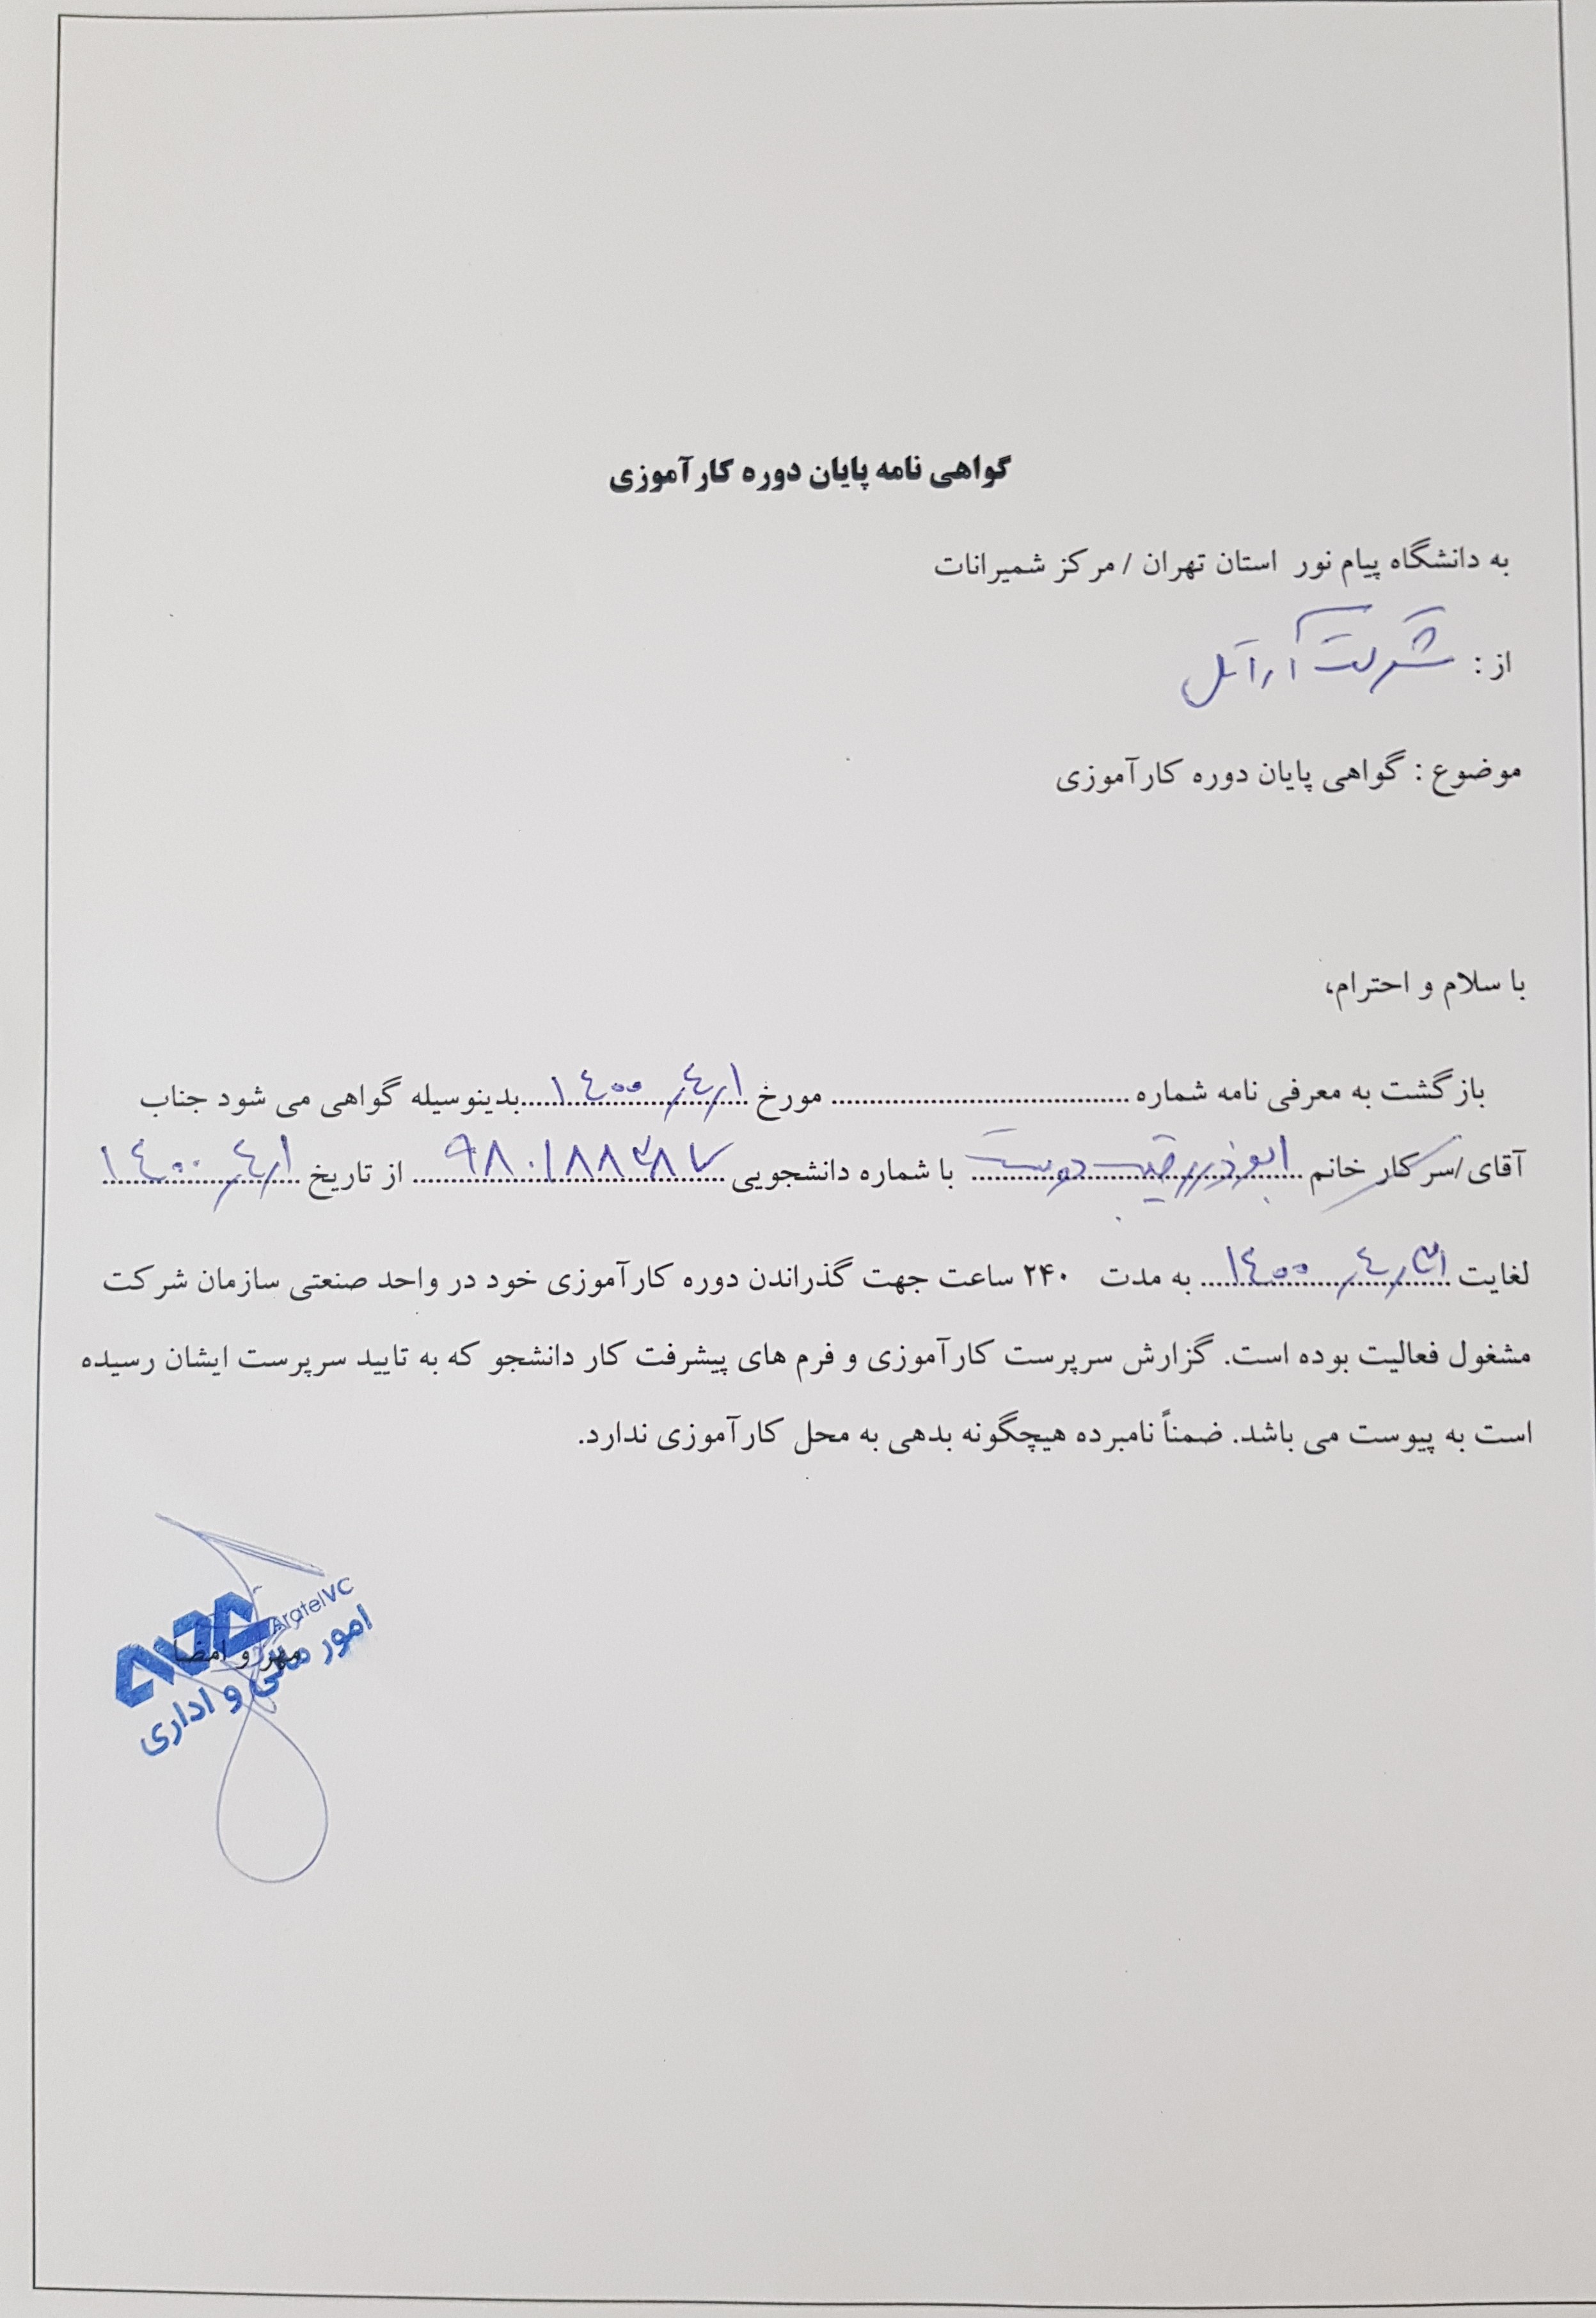 گواهی نامه پایان دوره کارآموزی
به دانشگاه پیام نور استان تهران / مرکز شمیرانات
از : شرکت آراتل
موضوع : گواهی پایان دوره کارآموزی
با سلام و احترام،
بازگشت به معرفی نامه شماره ........................................ مورخ ۱۴۰۰/۴/۱ بدینوسیله گواهی می شود جناب
آقای/سرکار خانم ابوذر رقیب دوست با شماره دانشجویی ۹۸۰۱۸۸۳۸۷ از تاریخ ۱۴۰۰/۴/۱
لغایت ۱۴۰۰/۴/۳۱ به مدت ۲۴۰ ساعت جهت گذراندن دوره کارآموزی خود در واحد صنعتی سازمان شرکت
مشغول فعالیت بوده است. گزارش سرپرست کارآموزی و فرم های پیشرفت کار دانشجو که به تایید سرپرست ایشان رسیده
است به پیوست می باشد. ضمناً نامبرده هیچگونه بدهی به محل کارآموزی ندارد.
AratelVC
مهر و امضا
امور مالی و اداری